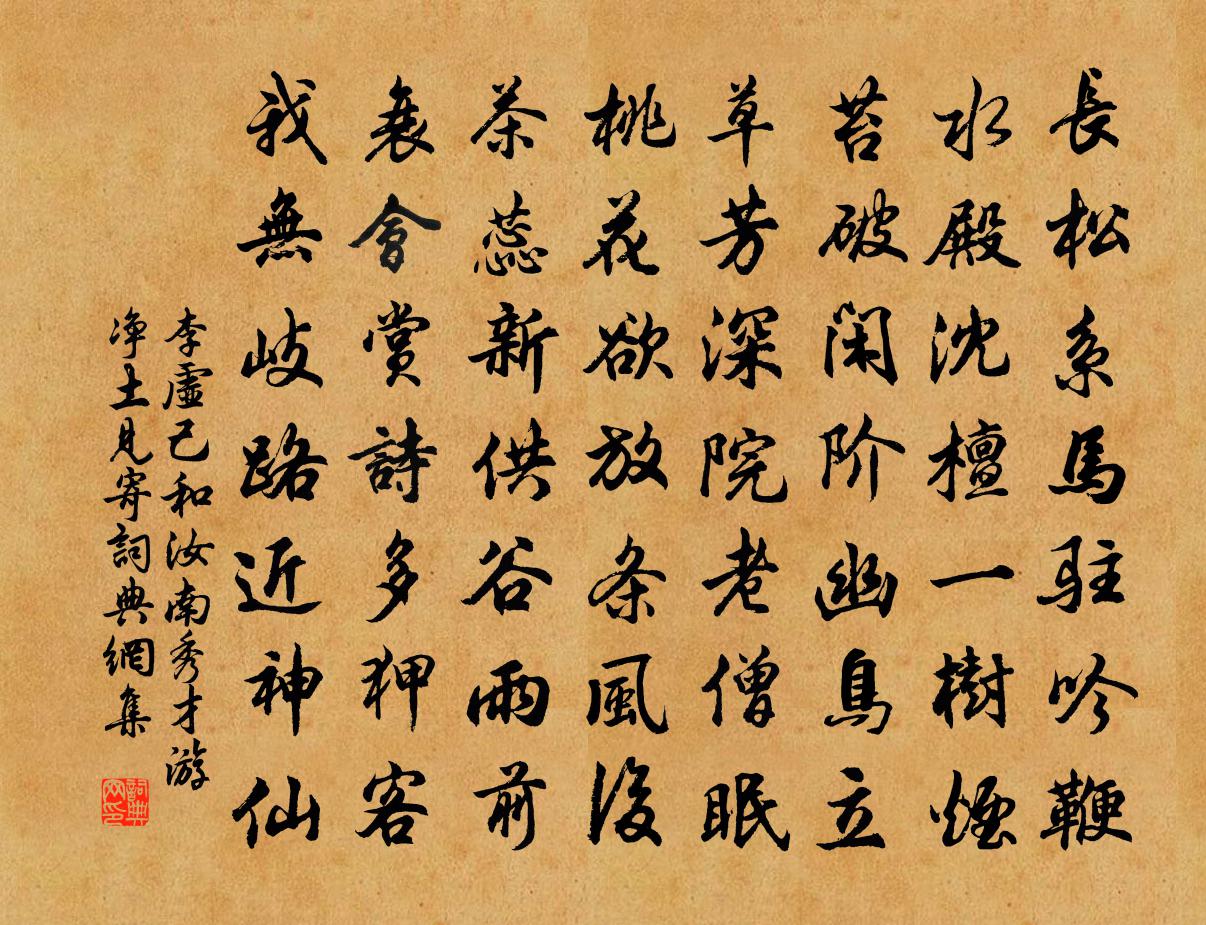 長松系馬駐吟鞭
水殿沈檀一樹煙
苔破閑阶幽鳥立
草芳深院老僧眠
桃花欲放条風後
茶蕊新供谷雨前
衰會賞詩多狎客
我無歧路近神仙
李虛己和汝南秀才游
净土見寄詞典網集
詞典網印